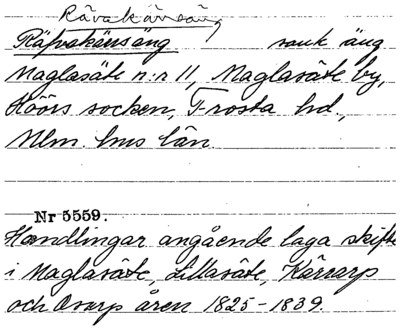 Rävakärsäng
Räfvakärsäng sank äng
Maglasäte n:r 11, Maglasäte by,
Höörs socken, Frosta hd.,
Mlm. hus län
Nr 5559.
Handlingar angående laga skifte
i Maglasäte, Lillasäte, Kärrarp
och Orup åren 1825-1839.